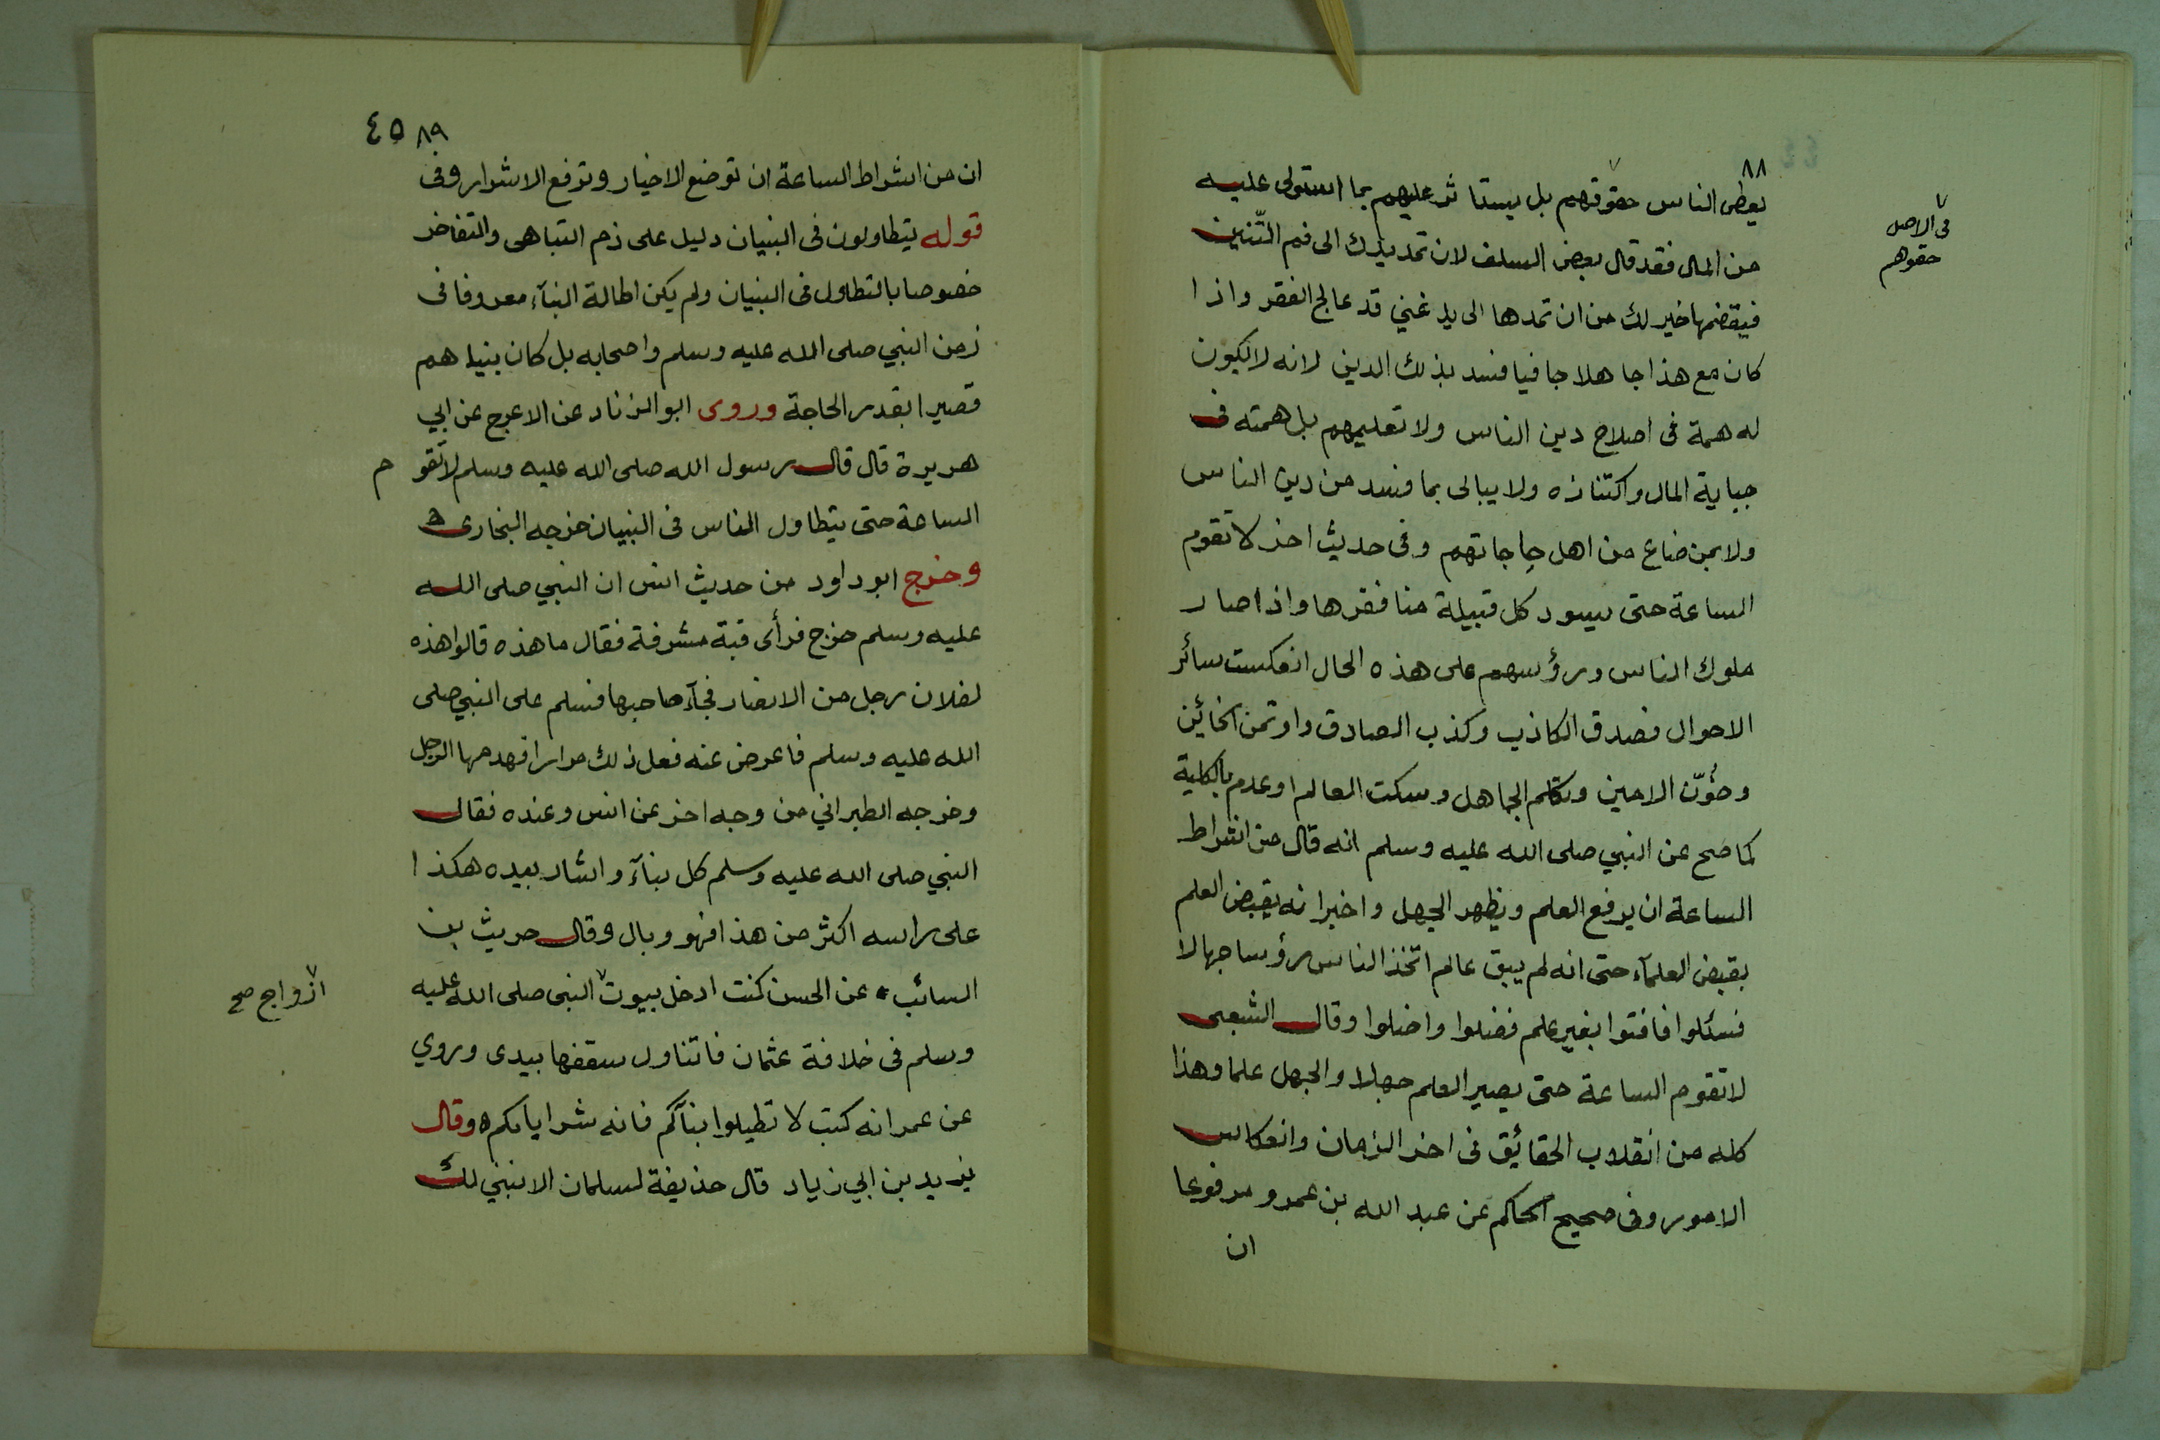 ٨٨
يعطى الناس حقوقهم بل يستاثر عليهم بما استولى عليه
من المال فقد قال بعض السلف لان تمد يدك الى فم التّنين
فيقضمها خير لك من ان تمدها الى يد غني قد عالج الفقر واذا
كان مع هذا جاهلا جافيا فسد بذلك الدين لانه لا يكون
له همة فى اصلاح دين الناس ولا تعليمهم بل همته فى
جباية المال واكتنازه ولا يبالى بما فسد من دين الناس
ولا بمن ضاع من اهل حاجاتهم وفى حديث اخر لا تقوم
الساعة حتى يسود كل قبيلة منافقرها واذا صار
ملوك الناس ورؤسهم على هذه الحال انعكست سائر
الاحوال فصدق الكاذب وكذب الصادق واوتمن الخائن
وخُوّن الامين وتكلم الجاهل وسكت العالم او عدم بالكلية
كما صح عن النبي صلى الله عليه وسلم انه قال من اشراط
الساعة ان يرفع العلم ويظهر الجهل واخبر انه يقبض العلم
بقبض العلمآء حتى انه لم يبق عالم اتخذ الناس رؤسا جهالا
فسئلوا فافتوا بغير علم فضلوا واضلوا وقال الشعبى
لا تقوم الساعة حتى يصير العلم جهلا والجهل علما وهذا
كله من انقلاب الحقائق فى اخر الزمان وانعكاس
الامور وفى صحيح الحاكم عن عبد الله بن عمرو مرفوعا
ان
فى الاصل
حقوهم
٨٩ ٤٥
ان من اشراط الساعة ان توضع الاخيار وترفع الاشرار وفى
قوله يتطاولون فى البنيان دليل على ذم التباهى والتفاخر
خصوصا بالتطاول فى البنيان ولم يكن اطالة البنآء معروفا فى
زمن النبي صلى الله عليه وسلم واصحابه بل كان بنياهم
قصيرا بقدر الحاجة وروى ابو الزناد عن الاعرج عن ابي
هريرة قال قال رسول الله صلى الله عليه وسلم لا تقو م
الساعة حتى يتطاول الناس فى البنيان خرجه البخارى ه
وخرج ابو داود من حديث انس ان النبي صلى الله
عليه وسلم خرج فرأى قبة مشرفة فقال ما هذه قالوا هذه
لفلان رجل من الانصار فجآء صاحبها فسلم على النبي صلى
الله عليه وسلم فاعرض عنه فعل ذلك مرارا فهدمها الرجل
وخرجه الطبراني من وجه اخر عن انس وعنده فقال
النبي صلى الله عليه وسلم كل بنآء واشار بيده هكذا
على راسه اكثر من هذا فهو وبال وقال حريث بن
السائب عن الحسن كنت ادخل بيوت النبى صلى الله عليه
وسلم فى خلافة عثمان فاتناول سقفها بيدى وروي
عن عمر انه كتب لا تطيلوا بنآكم فانه شر ايامكم ه وقال
يزيد بن ابي زياد قال حذيفة لسلمان الا نبني لك
ازواج صح